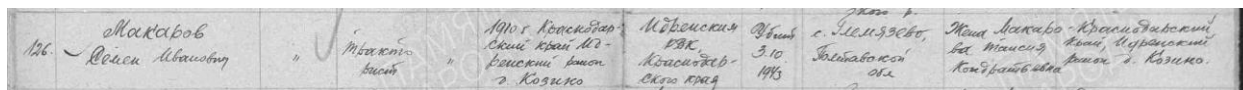 126. Макаров
Семен Иванович
"
Тракто
рист
"
1910 г. Краснодар-
ский край Ид-
ренский район
д. Козино
Идренским
РВК,
Краснодар-
ского края
Убит
3.10.
1943
с. Глемязево,
Полтавской
обл
Жена Макаро-
ва Таисия
Кондратьевна
Краснодарский
край, Идренский
район д. Козино.